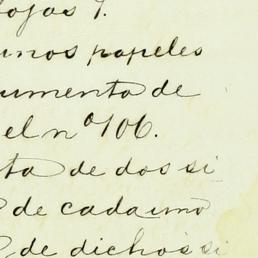 ojas 9.
unos papeles
umento de
el nº 106.
ta de dos si
de cada uno
de dichos si